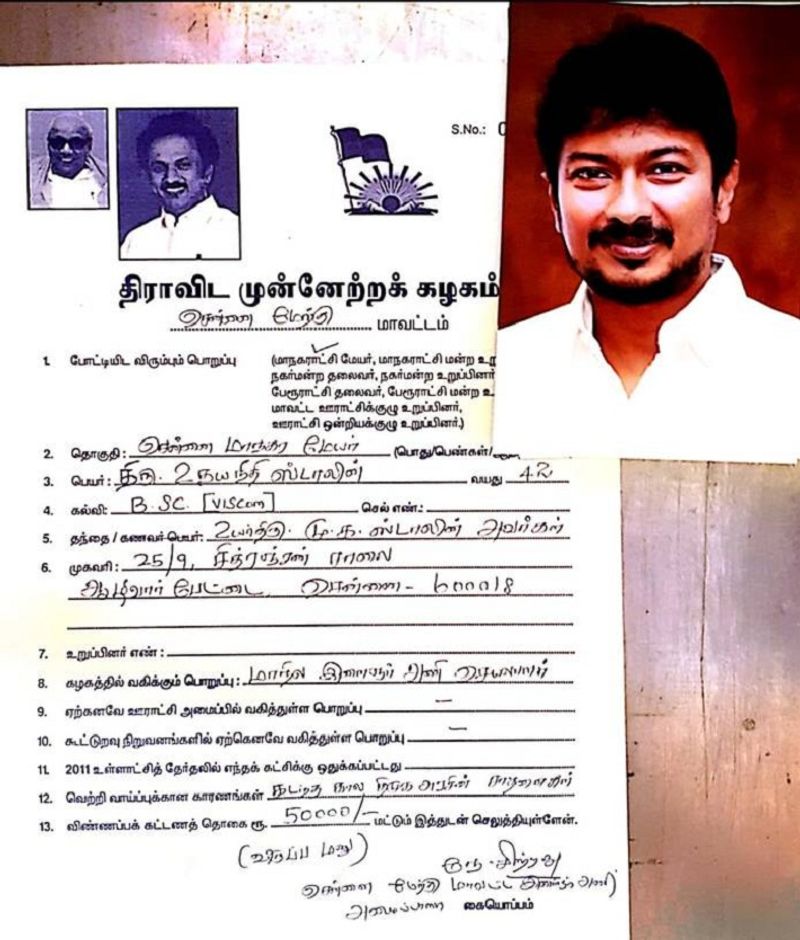 S.No.: 0
திராவிட முன்னேற்றக் கழகம்
சென்னை மேற்கு மாவட்டம்
1. போட்டியிட விரும்பும் பொறுப்பு (மாநகராட்சி மேயர், மாநகராட்சி மன்ற உறு
நகர்மன்ற தலைவர், நகர்மன்ற உறுப்பினர்
பேரூராட்சி தலைவர், பேரூராட்சி மன்ற உ
மாவட்ட ஊராட்சிக்குழு உறுப்பினர்,
ஊராட்சி ஒன்றியக்குழு உறுப்பினர்.)
2. தொகுதி : சென்னை மாநகர மேயர் (பொது/பெண்கள்/
3. பெயர் : திரு. உதயநிதி ஸ்டாலின் வயது 42
4. கல்வி: B.SC. [VISCOM] செல் எண்.:
5. தந்தை / கணவர் பெயர்: உயர்திரு. மு.க. ஸ்டாலின் அவர்கள்
6. முகவரி : 25/9, சித்ரஞ்சன் சாலை
ஆழ்வார் பேட்டை, சென்னை - 600018
7. உறுப்பினர் எண் :
8. கழகத்தில் வகிக்கும் பொறுப்பு : மாநில இளைஞர் அணி செயலாளர்
9. ஏற்கனவே ஊராட்சி அமைப்பில் வகித்துள்ள பொறுப்பு —
10. கூட்டுறவு நிறுவனங்களில் ஏற்கெனவே வகித்துள்ள பொறுப்பு —
11. 2011 உள்ளாட்சித் தேர்தலில் எந்தக் கட்சிக்கு ஒதுக்கப்பட்டது
12. வெற்றி வாய்ப்புக்கான காரணங்கள் கடந்த கால
13. விண்ணப்பக் கட்டணத் தொகை ரூ. 50000/- மட்டும் இத்துடன் செலுத்தியுள்ளேன்.
(விருப்ப மனு)
சென்னை மேற்கு மாவட்ட இளைஞர் அணி
அமைப்பாளர் கையொப்பம்